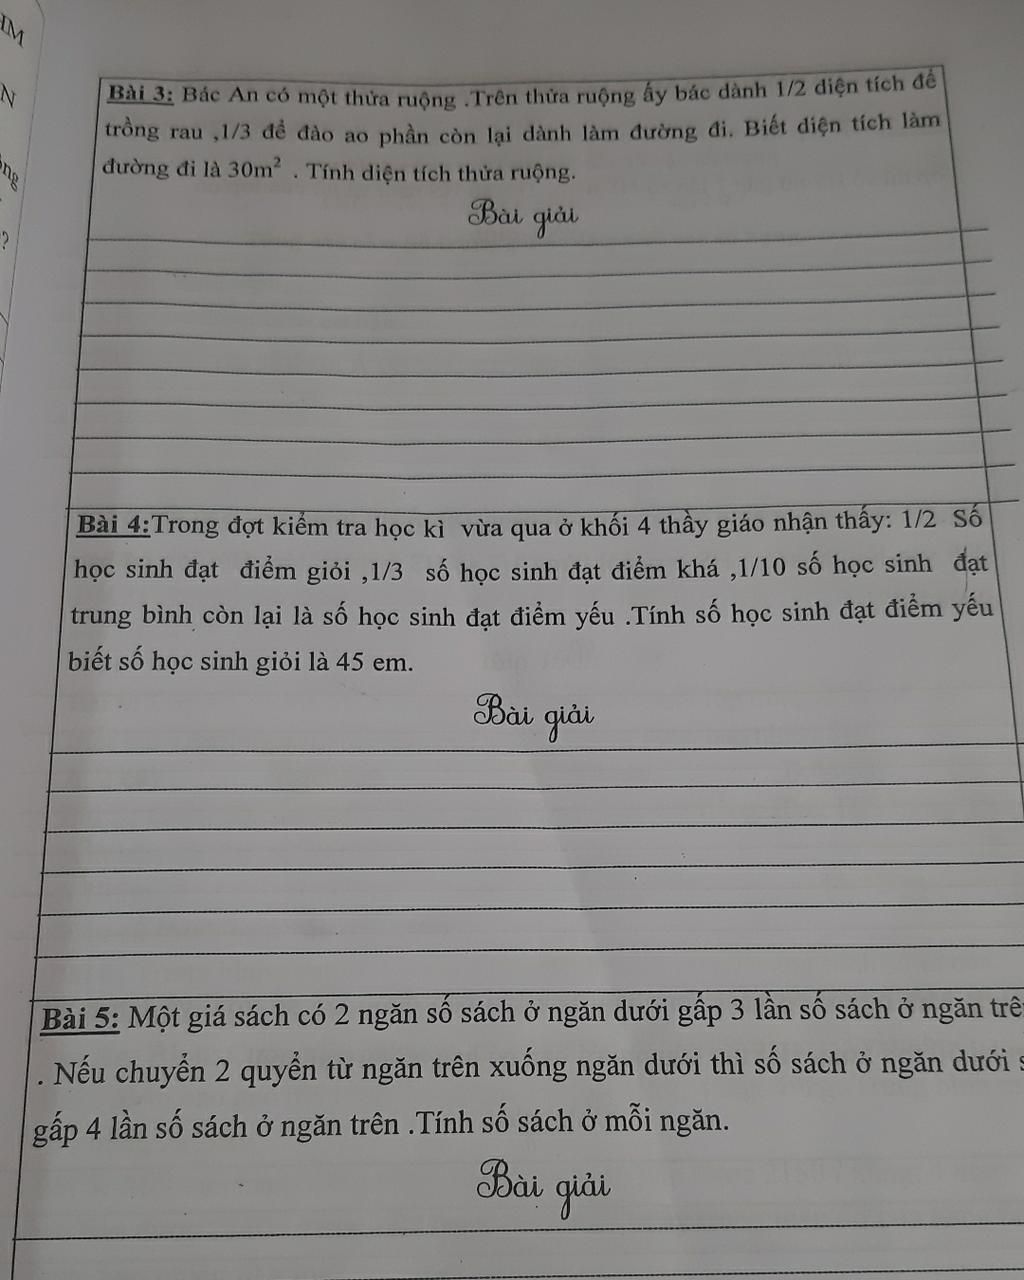 IM
N
ng
?
Bài 3: Bác An có một thửa ruộng .Trên thửa ruộng ấy bác dành 1/2 diện tích để
trồng rau ,1/3 để đào ao phần còn lại dành làm đường đi. Biết diện tích làm
đường đi là 30m² . Tính diện tích thửa ruộng.
Bài giải
Bài 4:Trong đợt kiểm tra học kì vừa qua ở khối 4 thầy giáo nhận thấy: 1/2 Số
học sinh đạt điểm giỏi ,1/3 số học sinh đạt điểm khá ,1/10 số học sinh đạt
trung bình còn lại là số học sinh đạt điểm yếu .Tính số học sinh đạt điểm yếu
biết số học sinh giỏi là 45 em.
Bài giải
Bài 5: Một giá sách có 2 ngăn số sách ở ngăn dưới gấp 3 lần số sách ở ngăn trê
. Nếu chuyển 2 quyển từ ngăn trên xuống ngăn dưới thì số sách ở ngăn dưới s
gấp 4 lần số sách ở ngăn trên .Tính số sách ở mỗi ngăn.
Bài giải